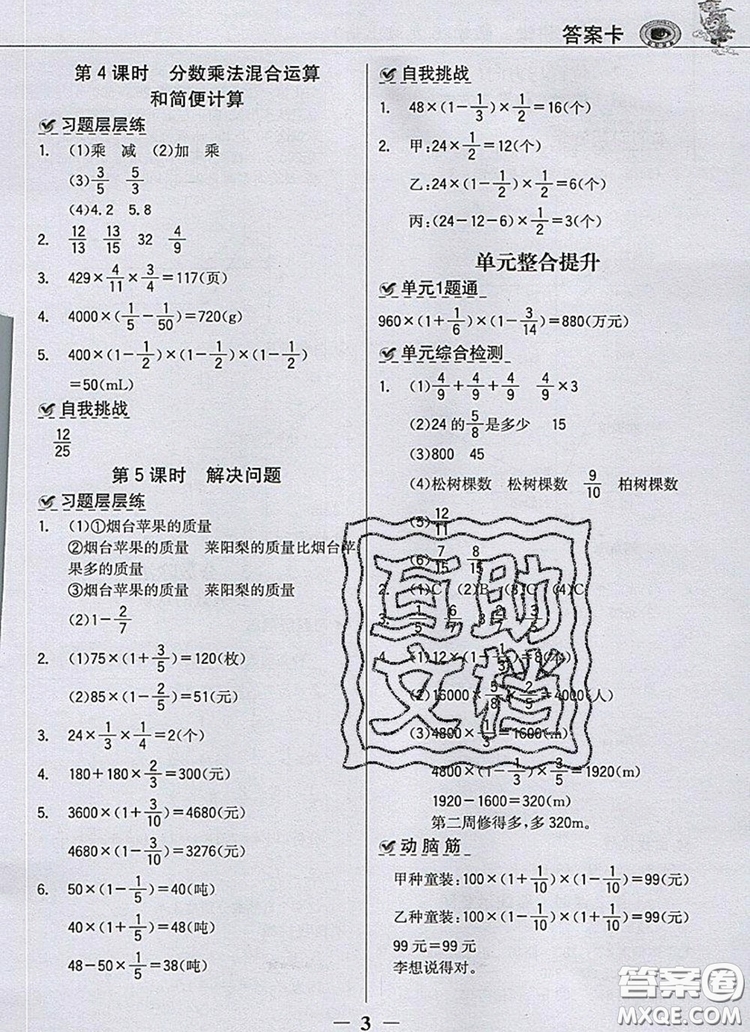 答案卡
第4课时 分数乘法混合运算
和简便计算
习题层层练
1. (1)乘 减 (2)加 乘
(3)3/5 5/3
(4)4.2 5.8
2. 12/13 13/15 32 4/9
3. 429×4/11×3/4=117(页)
4. 4000×(1/5-1/50)=720(g)
5. 400×(1-1/2)×(1-1/2)×(1-1/2)
=50(mL)
自我挑战
12/25
第5课时 解决问题
习题层层练
1. (1)①烟台苹果的质量
②烟台苹果的质量 莱阳梨的质量比烟台苹
果多的质量
③烟台苹果的质量 莱阳梨的质量
(2)1-2/7
2. (1)75×(1+3/5)=120(枚)
(2)85×(1-2/5)=51(元)
3. 24×1/3×1/4=2(个)
4. 180+180×2/3=300(元)
5. 3600×(1+3/10)=4680(元)
4680×(1-3/10)=3276(元)
6. 50×(1-1/5)=40(吨)
40×(1+1/5)=48(吨)
48-50×1/5=38(吨)
自我挑战
1. 48×(1-1/3)×1/2=16(个)
2. 甲:24×1/2=12(个)
乙:24×(1-1/2)×1/2=6(个)
丙:(24-12-6)×1/2=3(个)
单元整合提升
单元1题通
960×(1+1/6)×(1-3/14)=880(万元)
单元综合检测
1. (1)4/9+4/9+4/9 4/9×3
(2)24的5/8是多少 15
(3)800 45
(4)松树棵数 松树棵数 9/10 柏树棵数
(5)12/11
(6)7/15 8/15
2. (1)C (2)B (3)C (4)C
3. 1/5 6/7
4. (1)12×(1-1/3)=8(本)
(2)16000×5/8×2/5=4000(人)
(3)4800×1/3=1600(m)
4800×(1-1/3)×3/5=1920(m)
1920-1600=320(m)
第二周修得多,多320m。
动脑筋
甲种童装:100×(1+1/10)×(1-1/10)=99(元)
乙种童装:100×(1-1/10)×(1+1/10)=99(元)
99元=99元
李想说得对。
互助
文档
答案圈
MXQE.COM
— 3 —